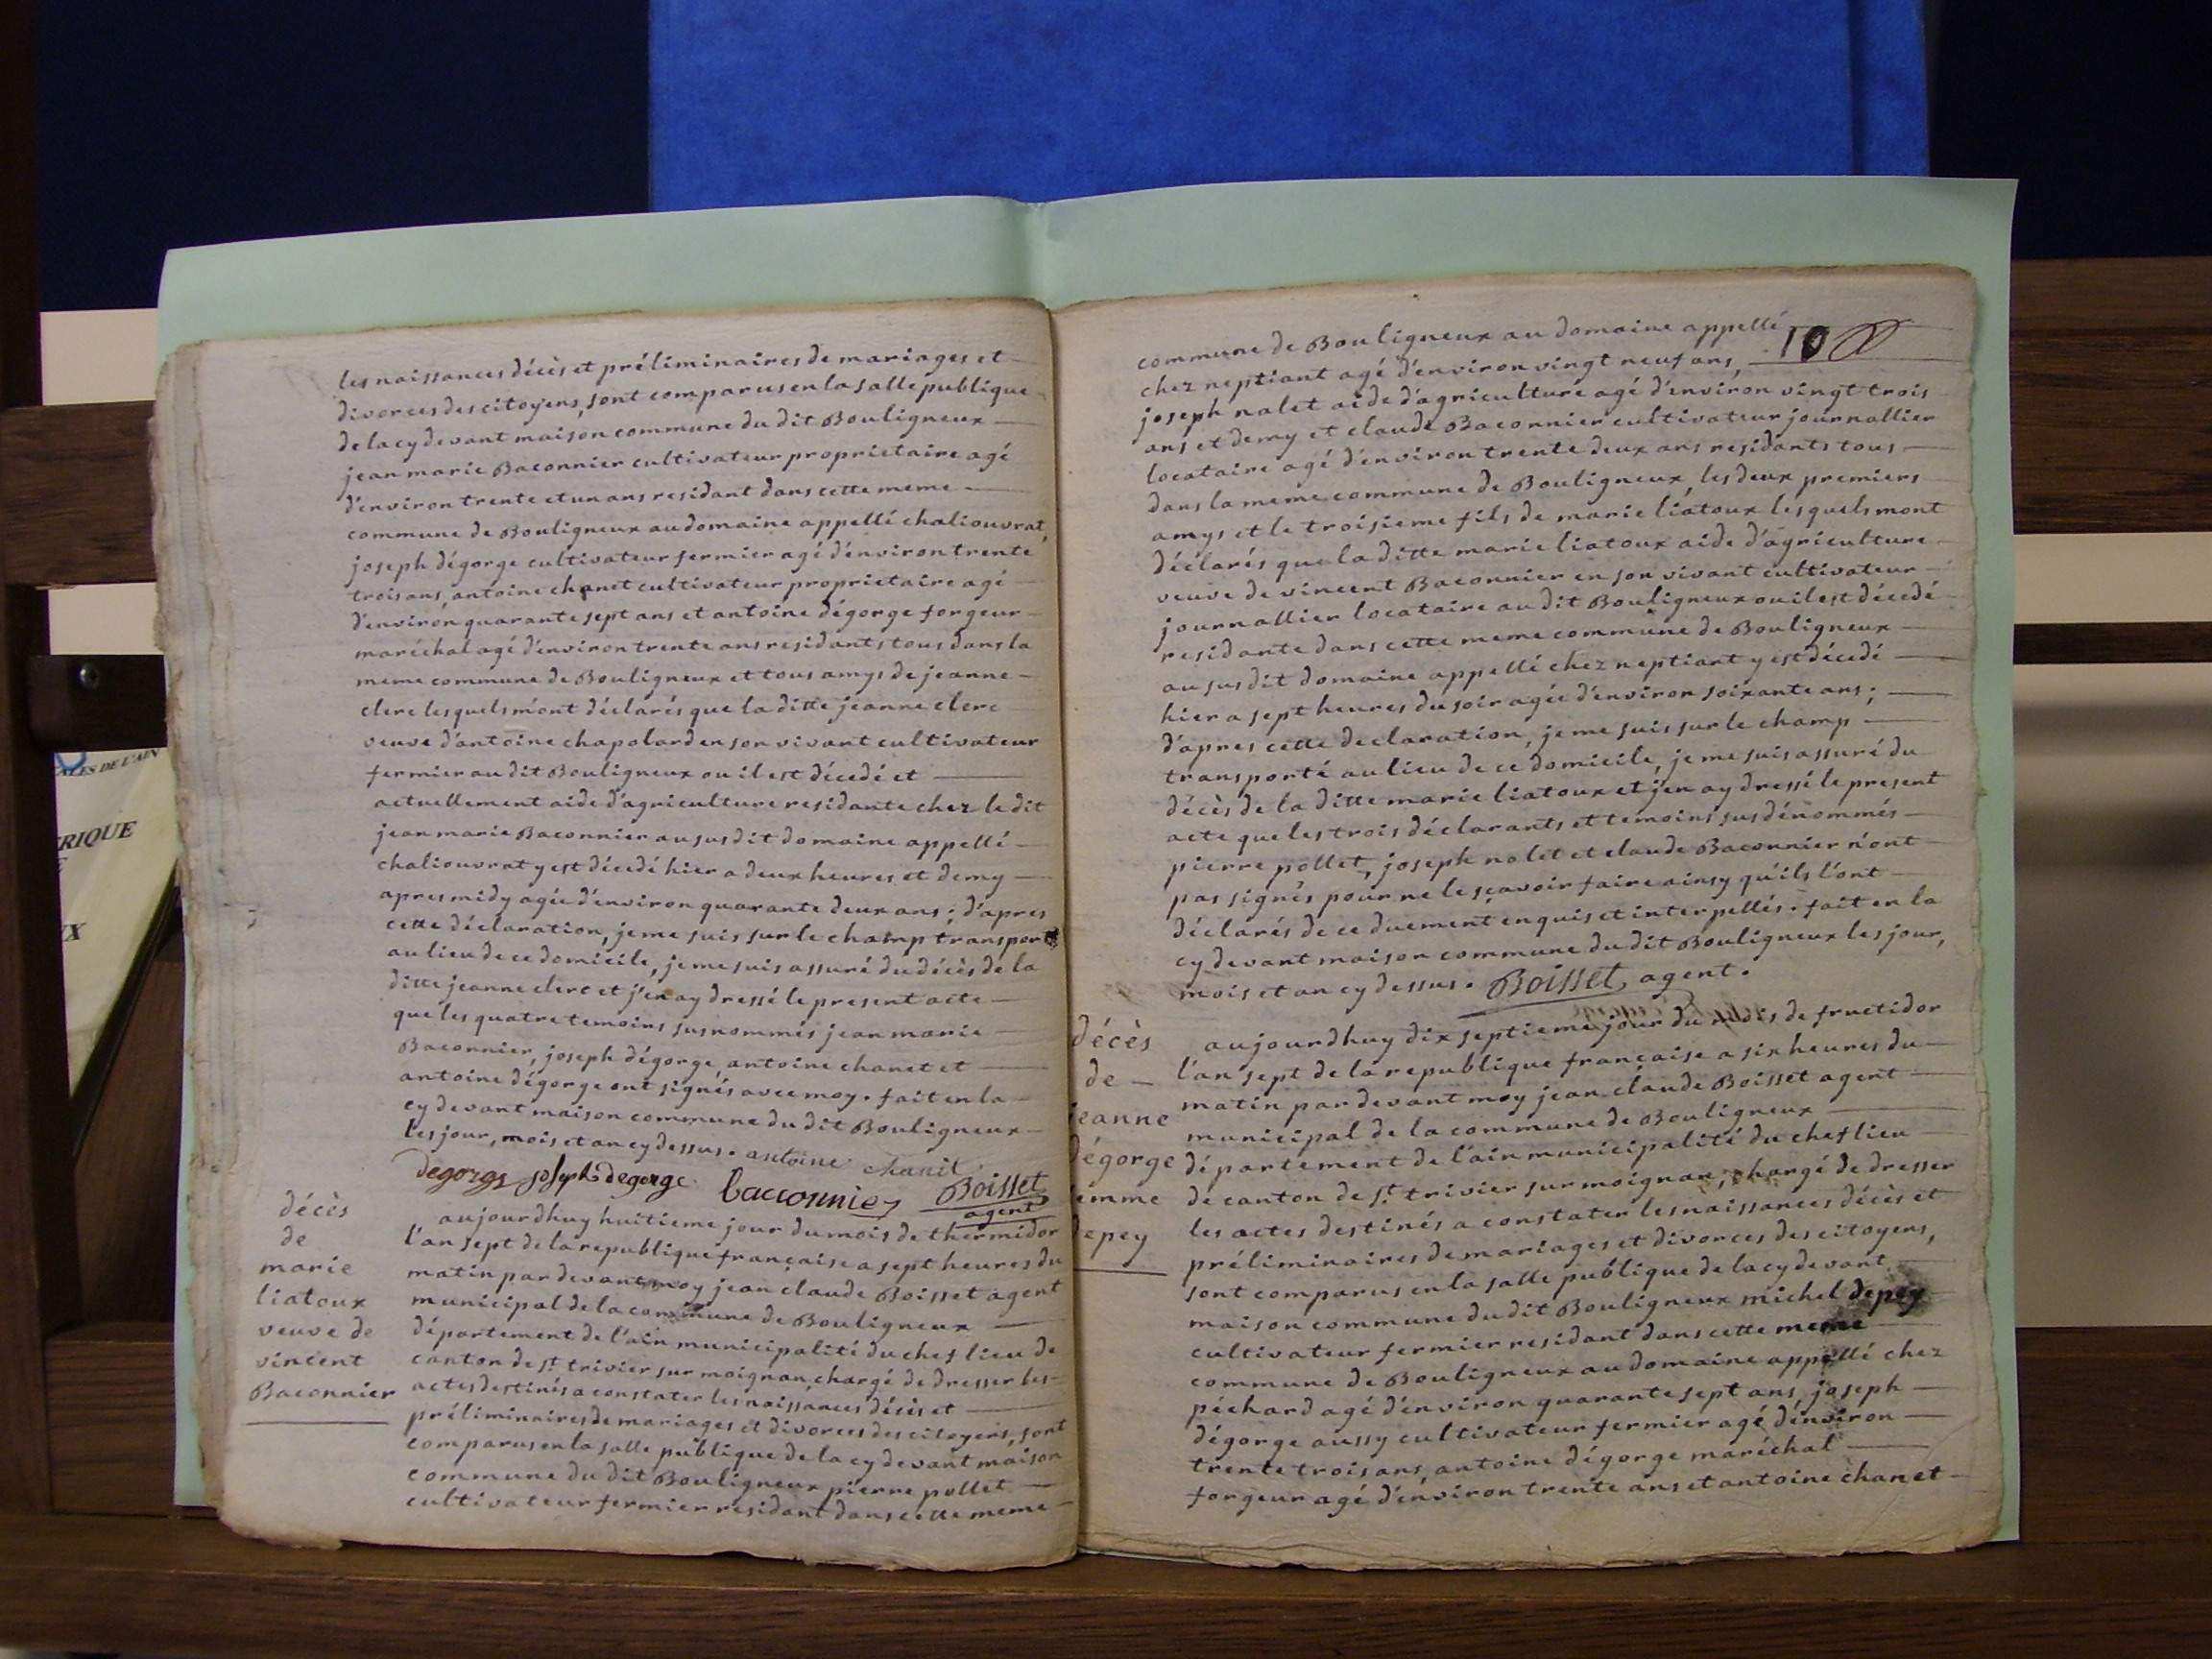 les naissances décès et préliminaires de mariages et
divorces des citoyens, sont comparus en la salle publique
de la cy devant maison commune du dit Bouligneux
jean marie Baconnier cultivateur proprietaire agé
d'environ trente et un ans residant dans cette meme
commune de Bouligneux au domaine appellé chaliouvrat,
joseph dégorge cultivateur fermier agé d'environ trente
trois ans, antoine chanet cultivateur proprietaire agé
d'environ quarante sept ans et antoine dégorge forgeur
maréchal agé d'environ trente ans residants tous dans la
meme commune de Bouligneux et tous amys de jeanne
clerc lesquels m'ont déclarés que la ditte jeanne clerc
veuve d'antoine chapolard en son vivant cultivateur
fermier au dit Bouligneux ou il est décedé et
actuellement aide d'agriculture residante chez le dit
jean marie Baconnier au susdit domaine appellé
chaliouvrat y est décedé hier a deux heures et demy
apres midy agée d'environ quarante deux ans ; d'apres
cette déclaration, je me suis sur le champ transporté
au lieu de ce domicile, je me suis assuré du décès de la
ditte jeanne clerc et j'en ay dressé le present acte
que les quatre temoins susnommés jean marie
Baconnier, joseph dégorge, antoine chanet et
antoine dégorge ont signés avec moy. fait en la
cy devant maison commune du dit Bouligneux
les jour, mois et an cy dessus. antoine chanet
degorge joseph degorge bacconnier Boisset
agent
décès
de
marie
liatoux
veuve de
vincent
Baconnier
aujourdhuy huitieme jour du mois de thermidor
l'an sept de la republique française a sept heures du
matin par devant moy jean claude Boisset agent
municipal de la commune de Bouligneux
département de l'ain municipalité du chef lieu de
canton de st. trivier sur moignan, chargé de dresser les
actes destinés a constater les naissances décès et
préliminaires de mariages et divorces des citoyens, sont
comparus en la salle publique de la cy devant maison
commune du dit Bouligneux pierre pollet
cultivateur fermier residant dans cette meme
10
commune de Bouligneux au domaine appellé
chez neptiant agé d'environ vingt neuf ans,
joseph nalet aide d'agriculture agé d'environ vingt trois
ans et demy et claude Baconnier cultivateur journallier
locataire agé d'environ trente deux ans residants tous
dans la meme commune de Bouligneux, les deux premiers
amys et le troisieme fils de marie liatoux lesquels mont
déclarés que la ditte marie liatoux aide d'agriculture
veuve de vincent Baconnier en son vivant cultivateur
journallier locataire au dit Bouligneux ou il est décedé
residante dans cette meme commune de Bouligneux
au susdit domaine appellé chez neptiant y est décedé
hier a sept heures du soir agée d'environ soixante ans ;
d'apres cette declaration, je me suis sur le champ
transporté au lieu de ce domicile, je me suis assuré du
décès de la ditte marie liatoux et j'en ay dressé le present
acte que les trois déclarants et temoins susdénommés
pierre pollet, joseph nalet et claude Baconnier n'ont
pas signés pour ne le sçavoir faire ainsy qu'ils l'ont
déclarés de ce duement enquis et interpellés. fait en la
cy devant maison commune du dit Bouligneux les jour,
mois et an cy dessus. Boisset agent.
décès
de
jeanne
dégorge
femme
depey
aujourdhuy dix septieme jour du mois de fructidor
l'an sept de la republique française a six heures du
matin par devant moy jean claude Boisset agent
municipal de la commune de Bouligneux
département de l'ain municipalité du chef lieu
de canton de st. trivier sur moignan, chargé de dresser
les actes destinés a constater les naissances décès et
préliminaires de mariages et divorces des citoyens,
sont comparus en la salle publique de la cy devant
maison commune du dit Bouligneux michel depey
cultivateur fermier residant dans cette meme
commune de Bouligneux au domaine appellé chez
péchard agé d'environ quarante sept ans, joseph
dégorge aussy cultivateur fermier agé d'environ
trente trois ans, antoine dégorge maréchal
forgeur agé d'environ trente ans et antoine chanet
ALES DE L'AIN
RIQUE
X